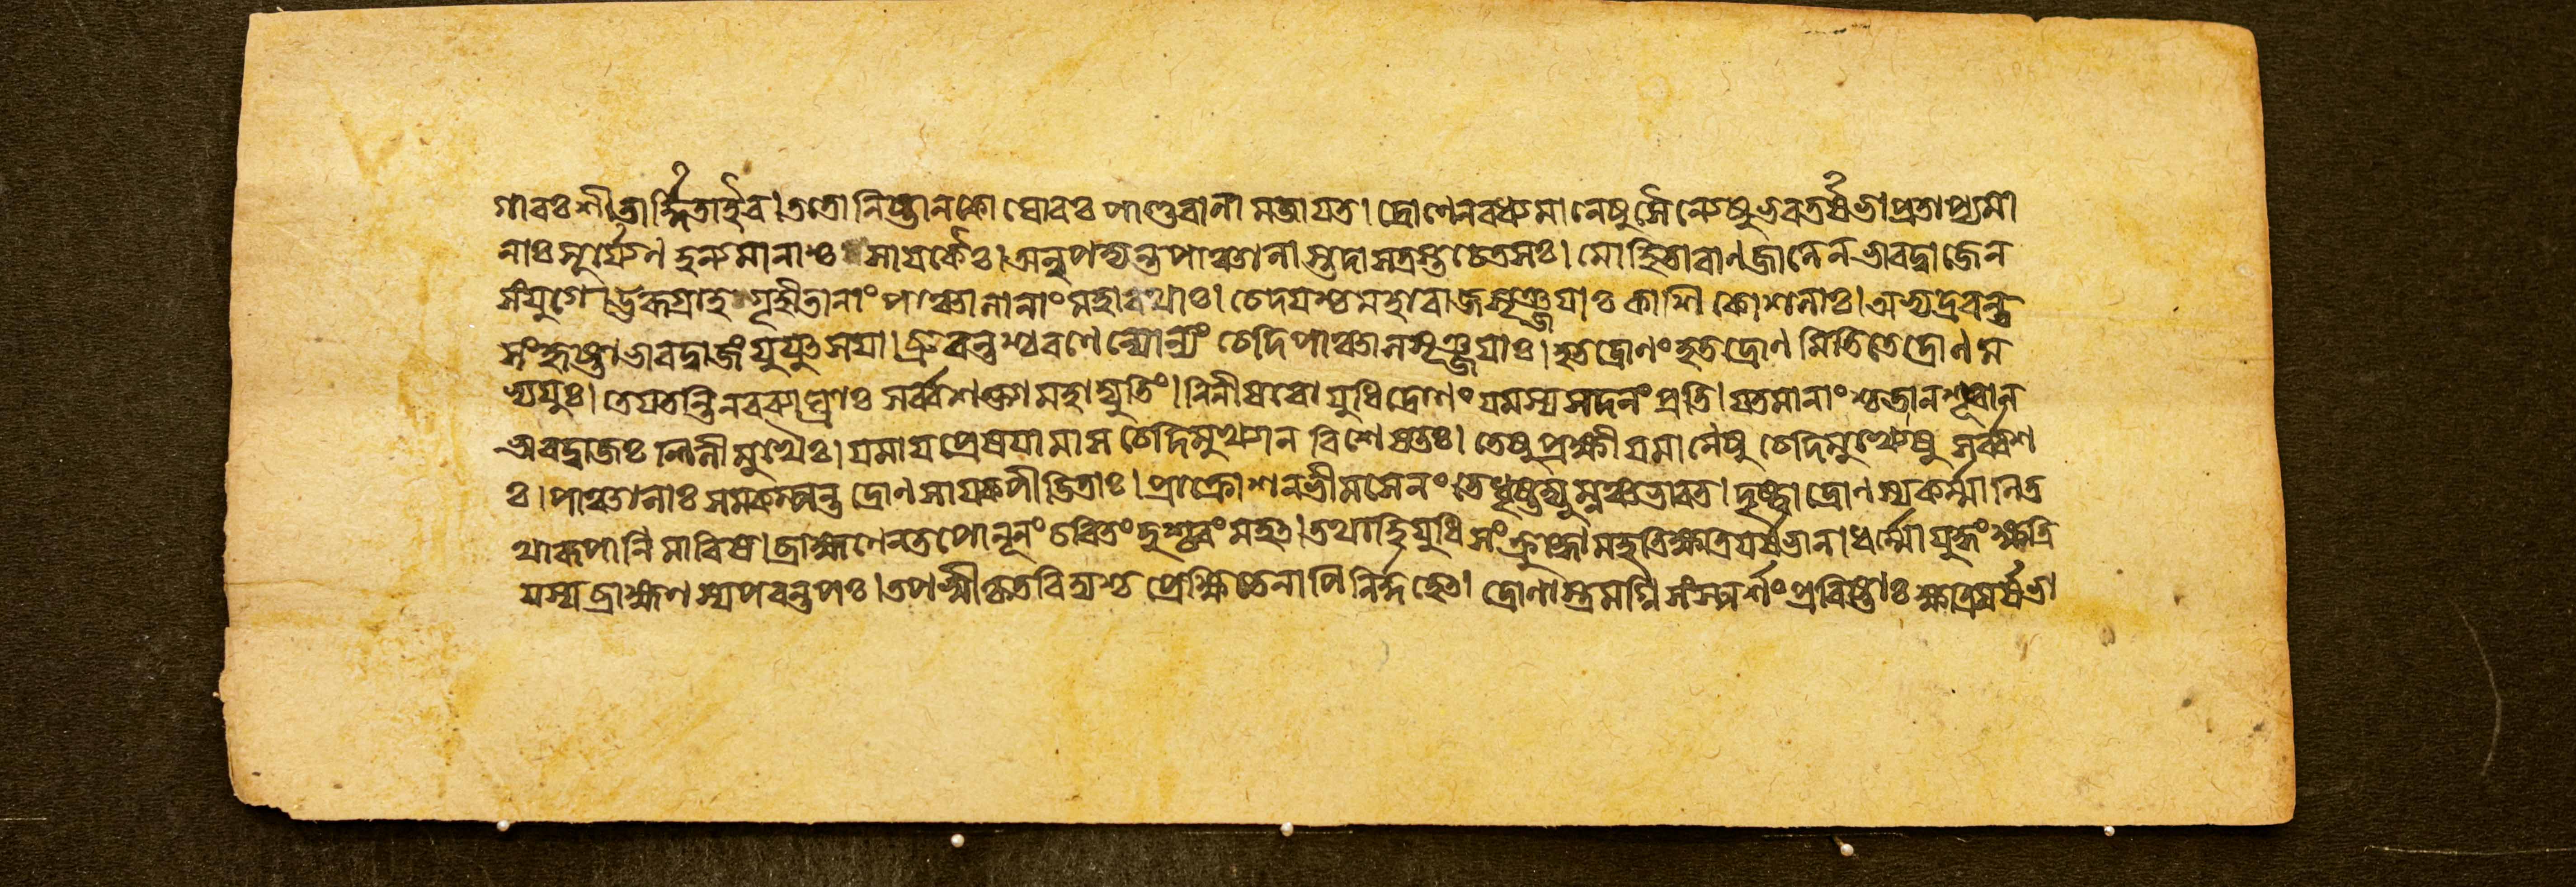 গাবঃ শীতার্দ্দিতা ইব। ততো নিষ্টানকো ঘোরঃ পাণ্ডবানামজাযত। দ্রোণেন বধ্যমানেষু সৈন্যেষু ভরতর্ষভ। প্রতাপ্যমা
নাঃ সূর্য্যেণ হন্যমানাশ্চ সাযকৈঃ। অন্বপদ্যন্ত পাঞ্চালাস্তদা সন্ত্রস্তচেতসঃ। মোহিতা বাণজালেন ভারদ্বাজেন
সংযুগে। ঊরুগ্রাহগৃহীতানাং পাঞ্চালানাং মহারথাঃ। চেদযশ্চ মহারাজ সৃঞ্জযাঃ কাশিকোশলাঃ। অভ্যদ্রবন্ত
সংহৃষ্টা ভারদ্বাজং যুযুৎসযা। ব্রুবন্তশ্চ রণেন্যোন্যং চেদিপাঞ্চালসৃঞ্জযাঃ। হত দ্রোণং হত দ্রোণমিতি তে দ্রোণম
ভ্যযুঃ। তে যতন্তি নরব্যাঘ্রাঃ সর্ব্বশক্ত্যা মহাদ্যুতিং। নিনীষবো যুধি দ্রোণং যমস্য সদনং প্রতি। যতমানাংশ্চ তান্ শূরান্
ভারদ্বাজঃ শিলীমুখৈঃ। যমায প্রেষযামাস চেদিমুখ্যান্ বিশেষতঃ। তেষু প্রক্ষীযমাণেষু চেদিমুখ্যেষু সর্ব্বশ
ঃ। পাঞ্চালাঃ সমকম্পন্ত দ্রোণসাযকপীডিতাঃ। প্রাক্রোশন্ ভীমসেনং তে ধৃষ্টদ্যুম্নঞ্চ ভারত। দৃষ্ট্বা দ্রোণস্য কর্ম্মাণি ত
থারূপাণি মারিষ। ব্রাহ্মণেন তপো নূনং চরিতং দুশ্চরং মহৎ। তথা হি যুধি সংক্রুদ্ধো দহতি ক্ষত্রিযর্ষভান্। ধর্ম্মো যুদ্ধং ক্ষত্রি
যস্য ব্রাহ্মণস্য পরন্তপঃ। তপস্বী কৃতবিদ্যশ্চ প্রেক্ষিতেনাপি নির্দ্দহেৎ। দ্রোণাস্ত্রমগ্নিসংস্পর্শং প্রবিষ্টাঃ ক্ষত্রিযর্ষভা